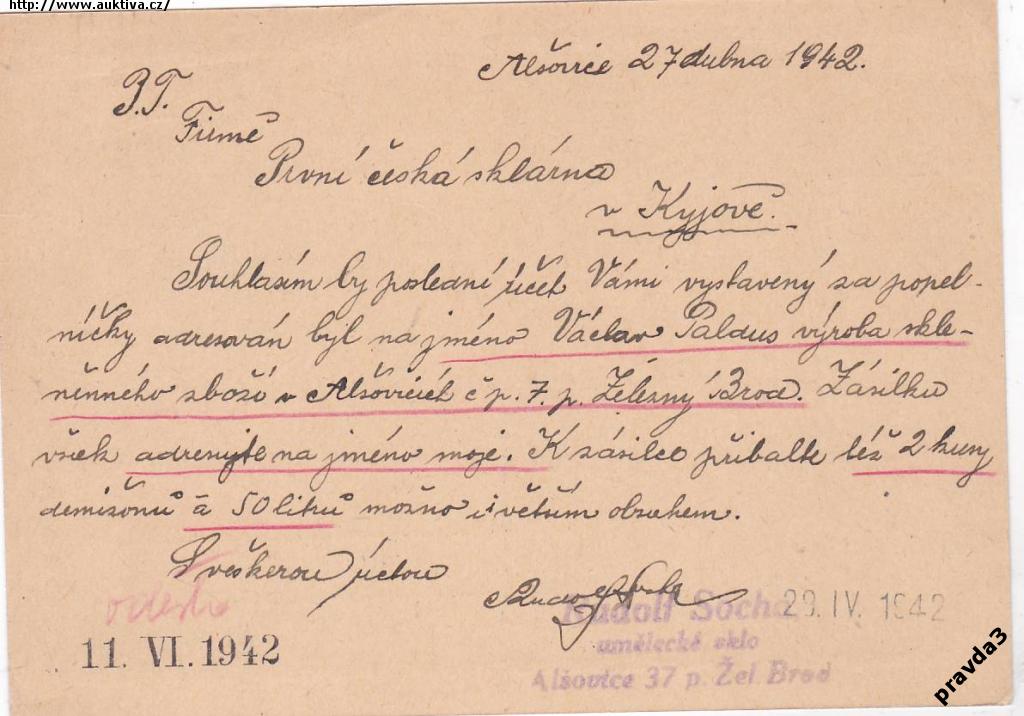 http://www.auktiva.cz/
Alšovice 27 dubna 1942.
P.T.
Firmě
První česká sklárna
v Kyjově.
Souhlasím by poslední účet Vámi vystavený za popel-
níčky adresován byl na jméno Václav Paldus výroba skle-
něnného zboží v Alšovicích čp. 7. p. Železný Brod. Zásilku
však adresujte na jméno moje. K zásilce přibalte též 2 kusy
demižónů á 50 litrů možno i větším obsahem.
S veškerou úctou
Rudolf Socha
29. IV. 1942
umělecké sklo
11. VI. 1942
Alšovice 37 p. Žel. Brod
pravda3